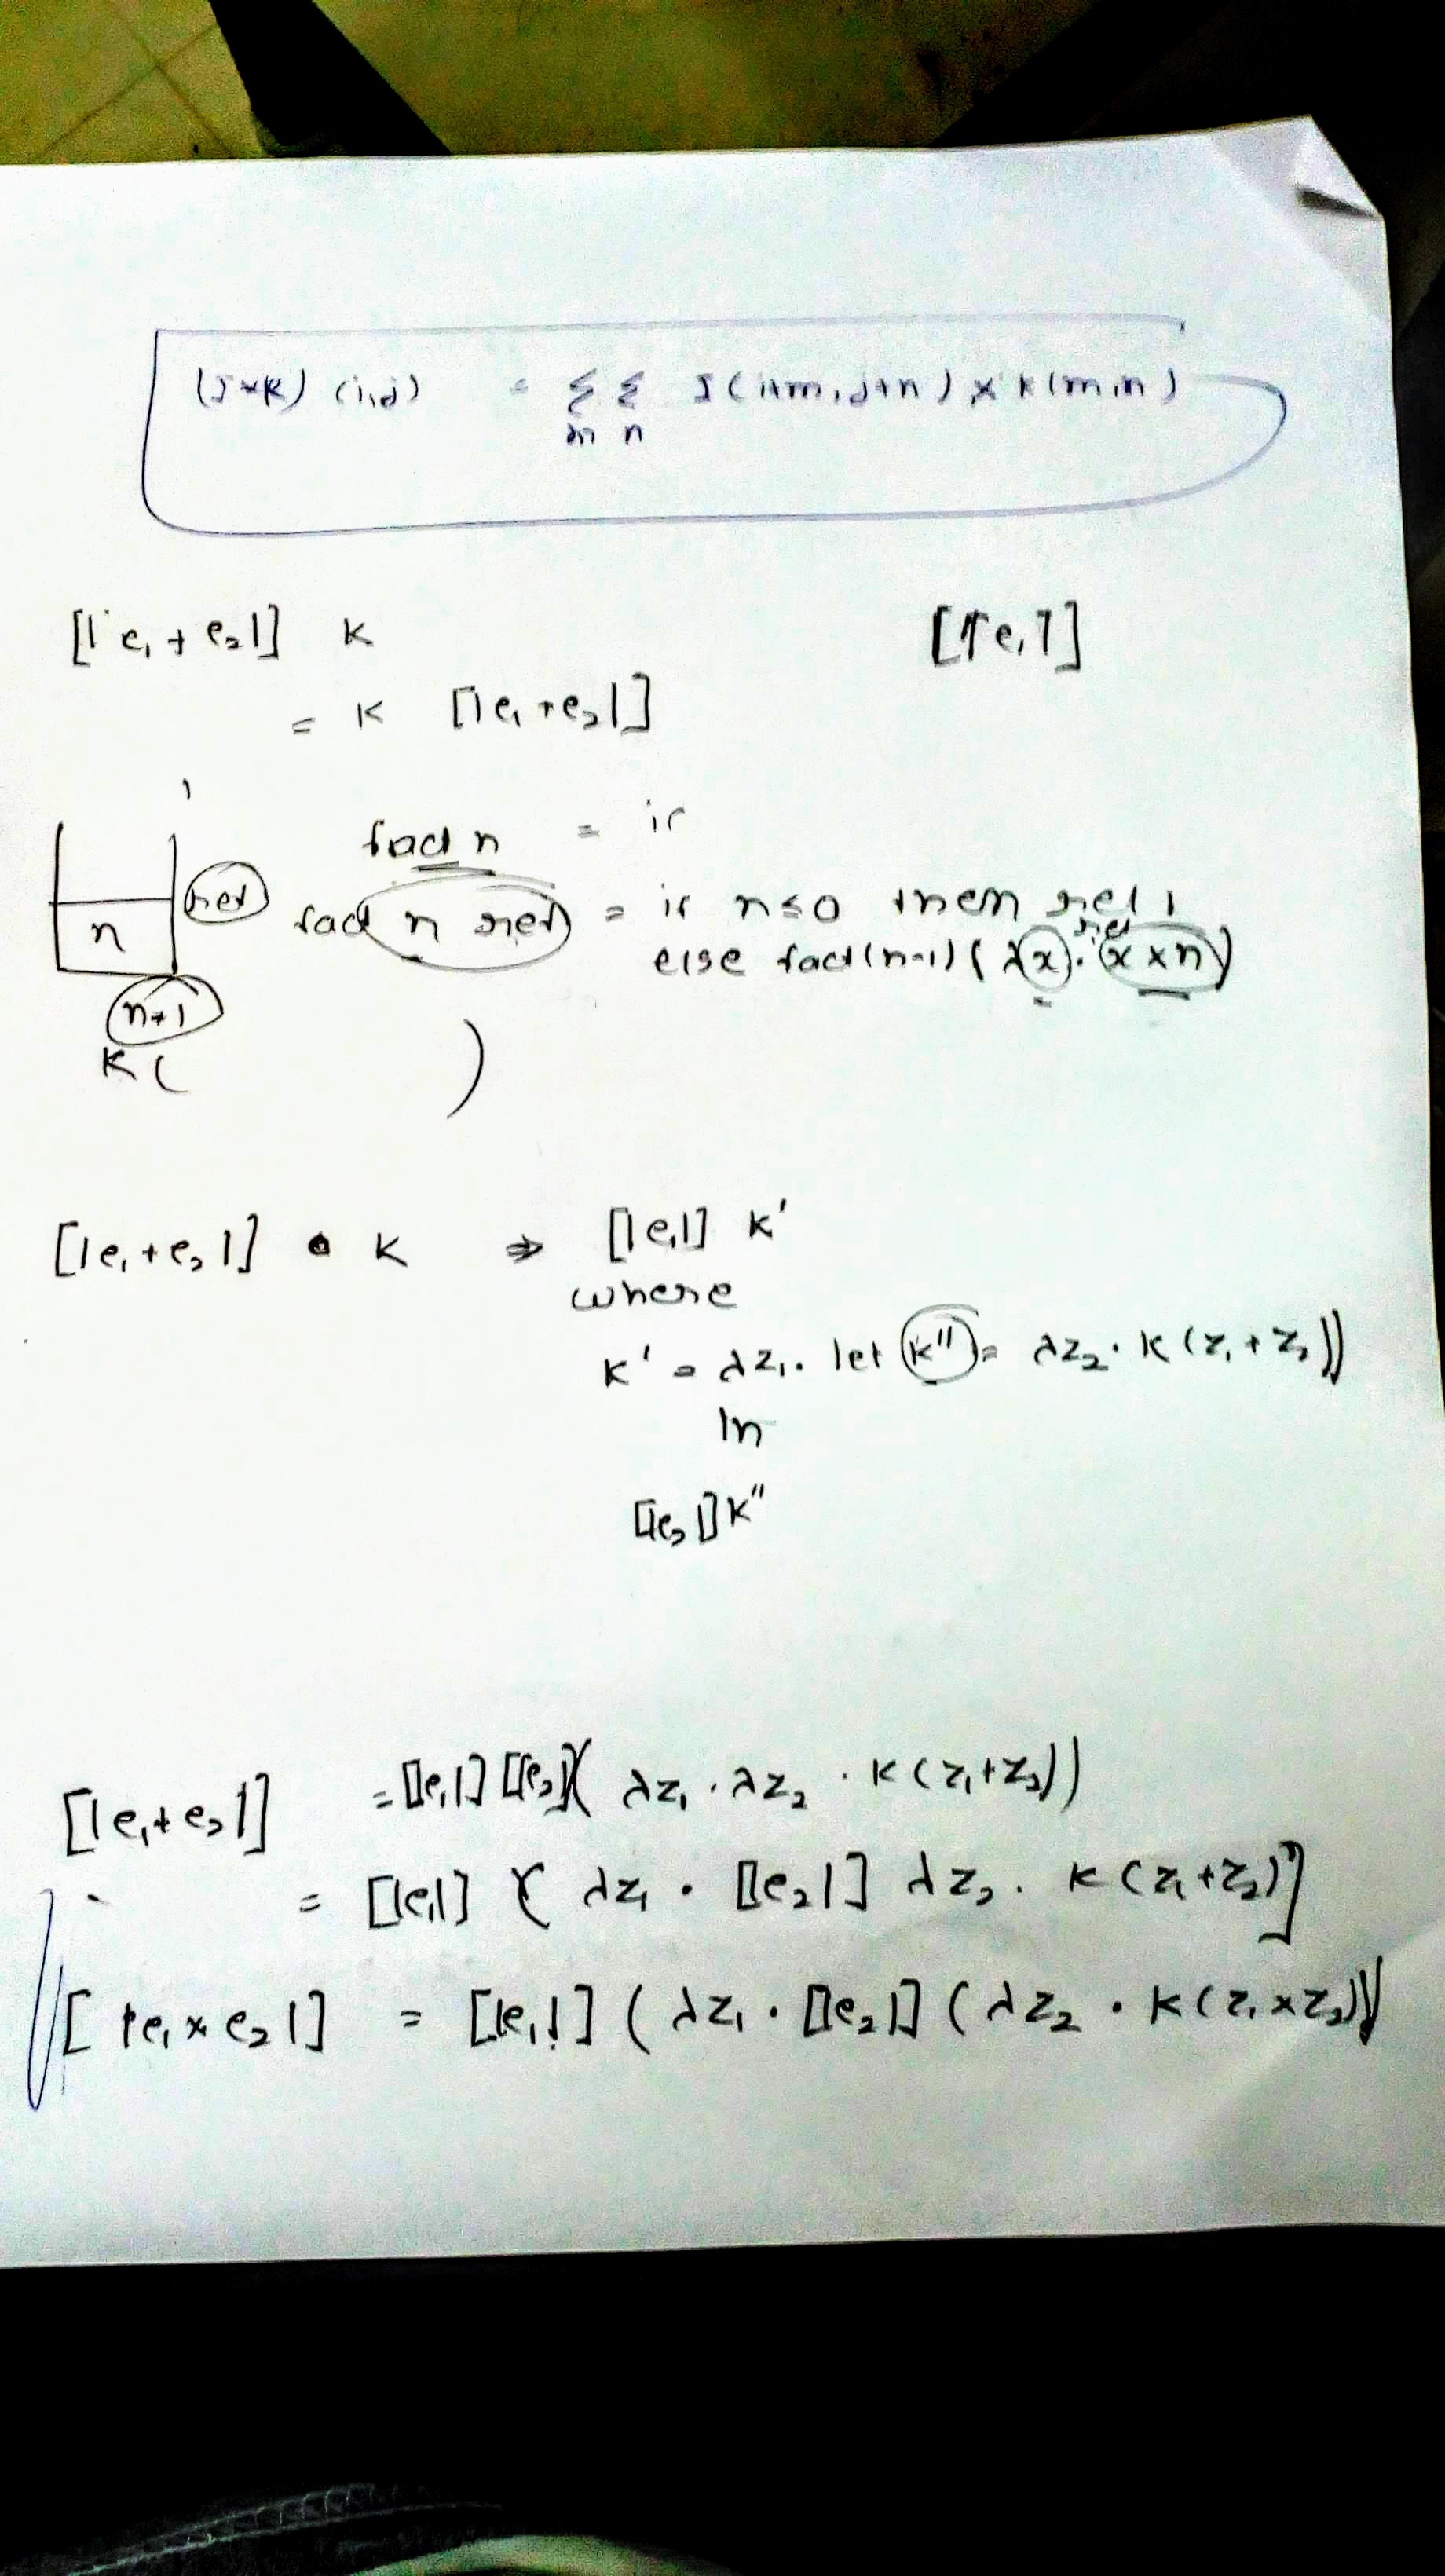 (I*K) (i,j) = Σ Σ I(i+m, j+n) × K(m,n)
m n
[|e₁ + e₂|] K
[|e₁|]
= K [|e₁+e₂|]
fact n = if
ret
fact n ret = if n≤0 then ret 1
n
ret
else fact(n-1) (λx. x × n)
n+1
K ( )
[|e₁+e₂|] K ⇒ [|e₁|] K'
where
K' = λz₁. let K'' = λz₂. K(z₁+z₂))
In
[|e₂|] K''
[|e₁+e₂|] = [|e₁|] [|e₂|] (λz₁ . λz₂ . K(z₁+z₂))
= [|e₁|] ( λz₁ . [|e₂|] λz₂. K(z₁+z₂)]
[|e₁×e₂|] = [|e₁|] (λz₁ . [|e₂|] (λz₂ . K(z₁×z₂)))